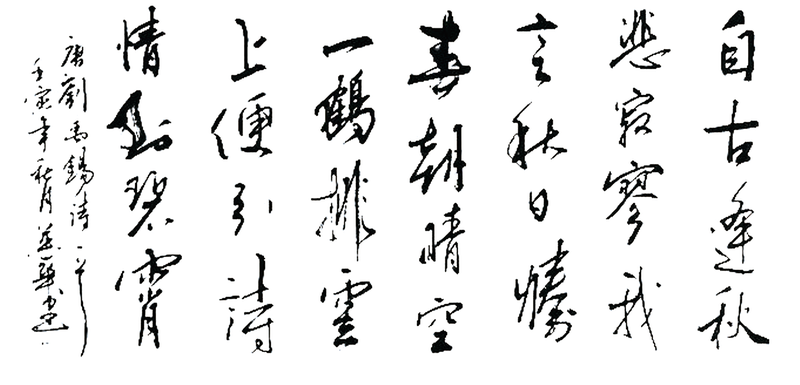 自古逢秋
悲寂寥我
言秋日勝
春朝晴空
一鶴排雲
上便引詩
情到碧霄
唐劉禹錫詩一首
壬寅年秋月